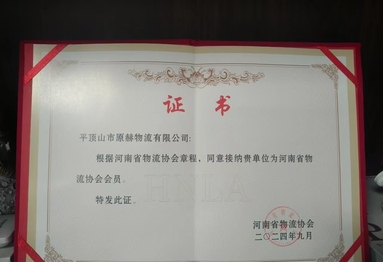 证书
平顶山市原赫物流有限公司:
根据河南省物流协会章程，同意接纳贵单位为河南省物
流协会会员。
特发此证。
HNLA
河南省物流协会
二〇二四年九月